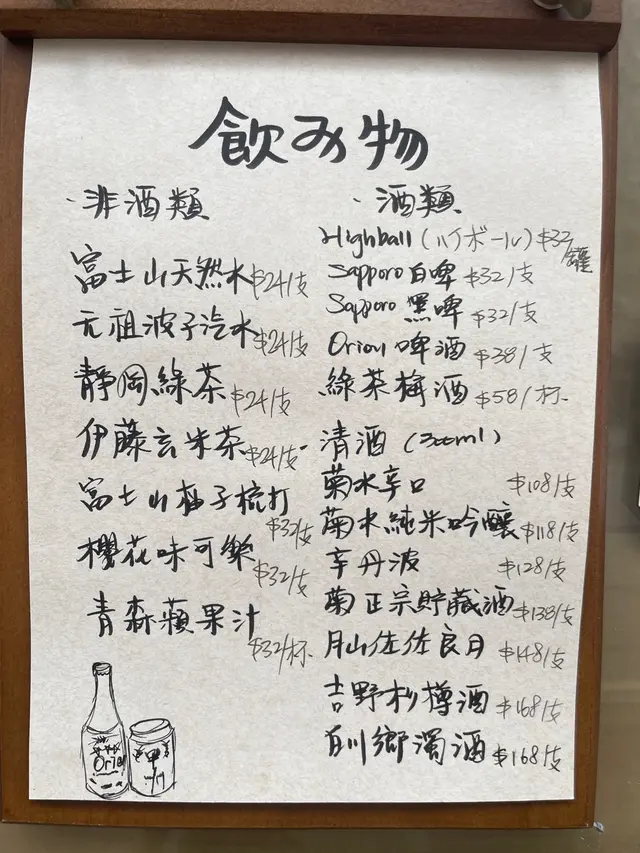 飲み物
·非酒類
富士山天然水 $24/支
元祖波子汽水 $24/支
靜岡綠茶 $24/支
伊藤玄米茶 $24/支
富士山柚子梳打 $32/支
櫻花味可樂 $32/支
青森蘋果汁 $32/杯
·酒類
Highball (ハイボール) $32/罐
Sapporo白啤 $32/支
Sapporo黑啤 $32/支
Orion啤酒 $38/支
綠茶梅酒 $58/杯
清酒 (300ml)
菊水辛口 $108/支
菊水純米吟釀 $118/支
辛丹波 $128/支
菊正宗貯藏酒 $138/支
月山佐佐良月 $148/支
吉野杉樽酒 $168/支
白川鄉濁酒 $168/支